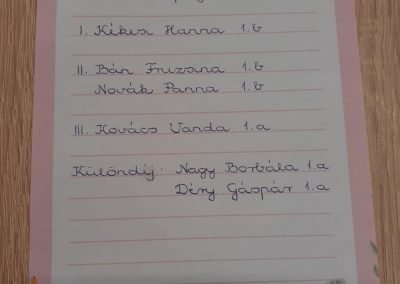 I. Kékesi Hanna 1.b
II. Bán Fruzsina 1.b
Novák Panna 1.b
III. Kovács Vanda 1.a
Különdíj: Nagy Borbála 1.a
Dény Gáspár 1.a